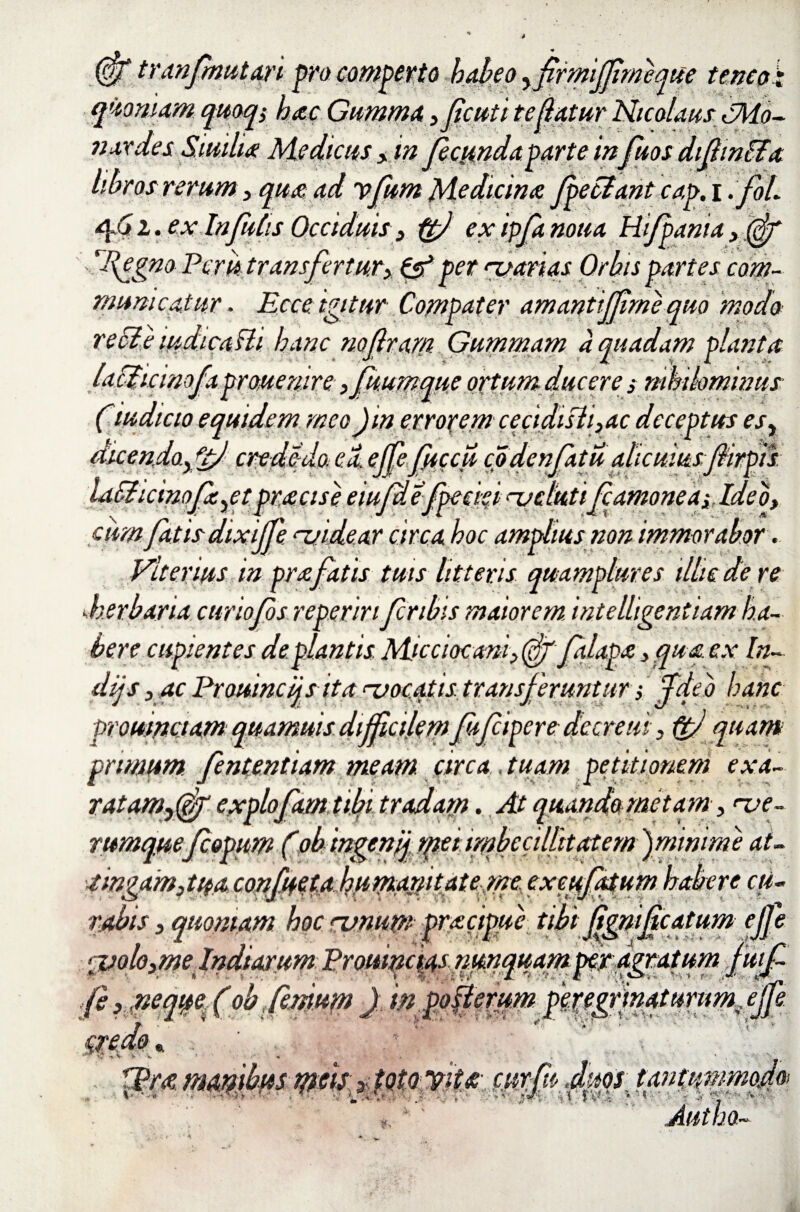 & tranſmutari pro comperto habeo, firmiſſimeque teneo:
quoniam quoqȝ hæc Gumma, ſicuti teſtatur Nicolaus Mo-
nardes Siuiliæ Medicus, in ſecunda parte in ſuos diſtincta
libros rerum, quæ ad vſum Medicinæ ſpectant cap. 1. fol.
462. ex Inſulis Occiduis, & ex ipſa noua Hiſpania, &
Regno Perù transfertur, & per varias Orbis partes com-
municatur. Ecce igitur Compater amantiſſimè quo modo
rectè iudicaſti hanc noſtram Gummam à quadam planta
lacticinoſa prouenire, ſuumque ortum ducere; nihilominus
(iudicio equidem meo) in errorem cecidiſti, ac deceptus es,
dicendo, & credēdo eā eſſe ſuccū cōdenſatū alicuius ſtirpis
lacticinoſæ, et præcisè eiuſdē ſpeciei veluti ſcamoneæ; Ideò,
cùm ſatis dixiſſe videar circa hoc amplius non immorabor.
Vlterius in præfatis tuis litteris quamplures illic de re
herbaria curioſos reperiri ſcribis maiorem intelligentiam ha-
bere cupientes de plantis Micciocani, & ſalapæ, quæ ex In-
dijs, ac Prouincijs ita vocatis transferuntur; Jdeò hanc
prouinciam quamuis difficilem ſuſcipere decreui, & quam
primum ſententiam meam circa tuam petitionem exa-
ratam, & exploſam tibi tradam. At quando metam, ve-
rumque ſcopum (ob ingenij mei imbecillitatem) minimè at-
tingam, tua conſueta humanitate me excuſatum habere cu-
rabis, quoniam hoc vnum præcipuè tibi ſignificatum eſſe
volo, me Indiarum Prouincias nunquam per agratum fuiſ-
ſe, neque (ob ſenium) in poſterum peregrinaturum eſſe
credo.
Præ manibus meis, toto vitæ curſu duos tantummodo
Autho-